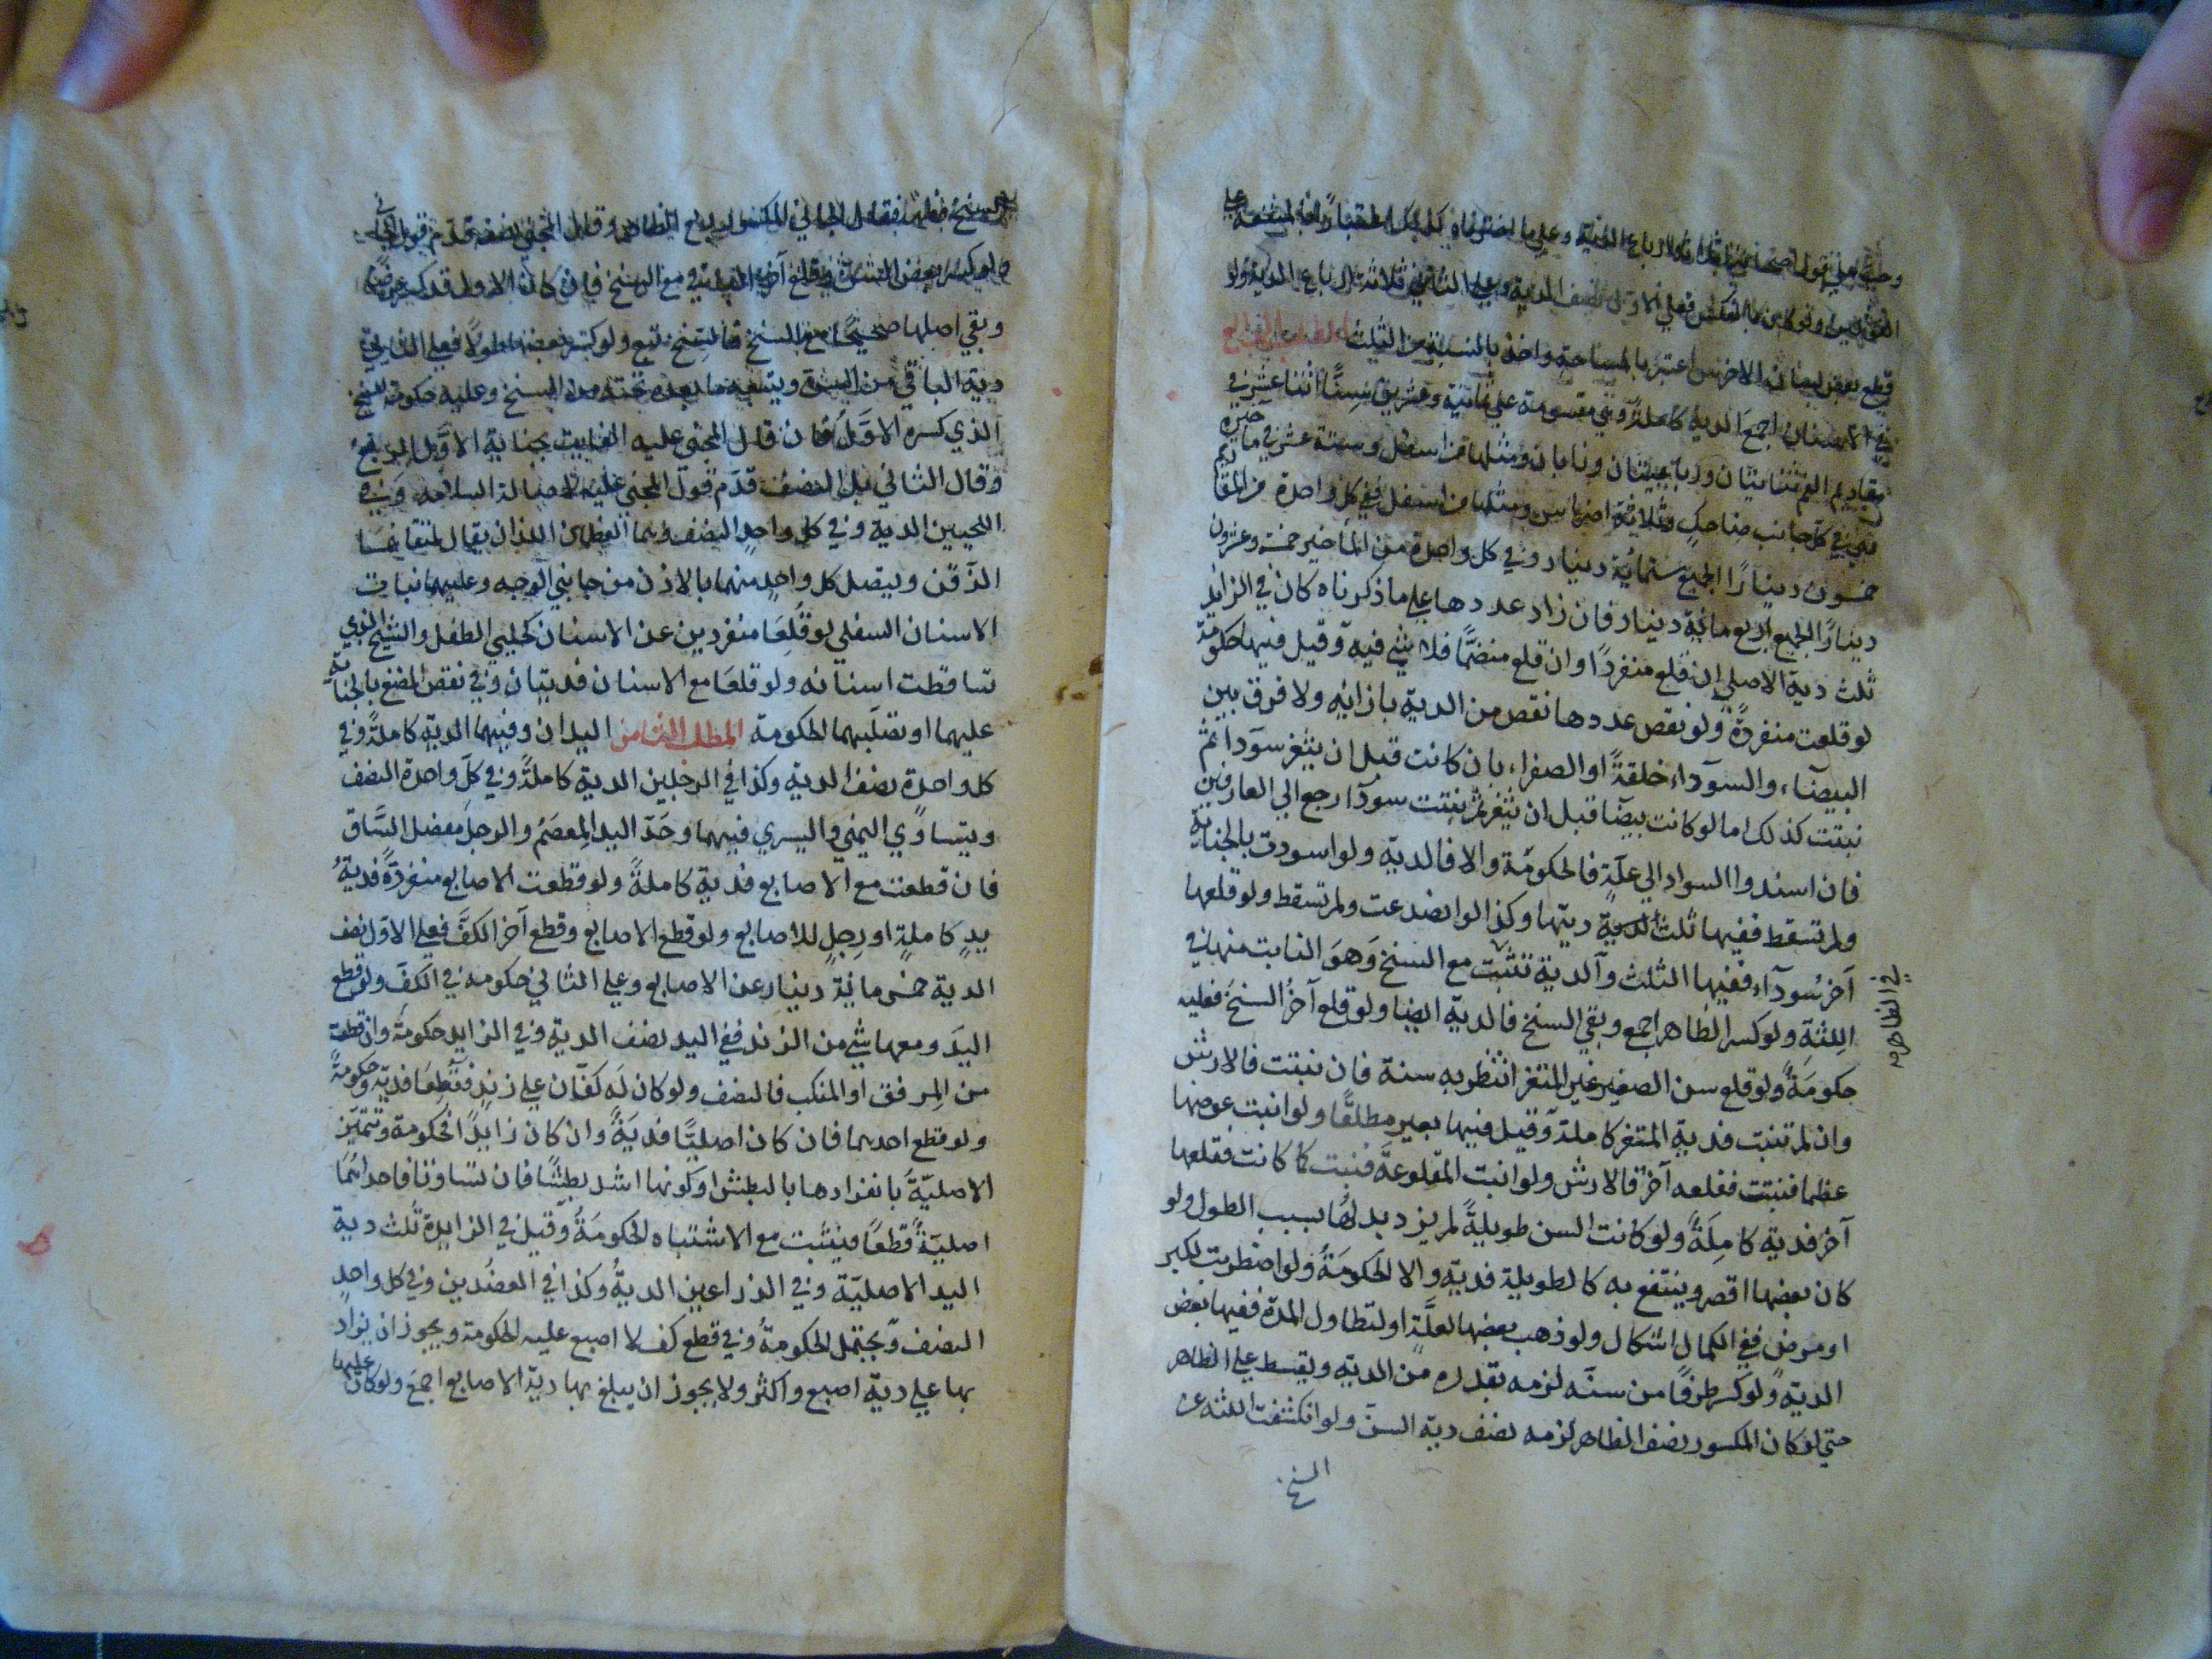 قطع بعض لسان الاخرس اعتبر بالمساحة واخذ بالنسبة من الثلث المطلب السابع
في الاسنان اجمع الدية كاملة وهي مقسومة على ثمانية وعشرين سنًا اثنا عشر في
مقاديم الفم ثنيتان ورباعيتان ونابان ومثلها من اسفل وستة عشر في مآخيره
في كل جانب ضاحك وثلاثة اضراس ومثلها من اسفل ففي كل واحدة من المقاديم
خمسون دينارًا الجميع ستمائة دينار وفي كل واحدة من المآخير خمسة وعشرون
دينارًا الجميع اربع مائة دينار فان زاد عددها على ما ذكرناه كان في الزايد
ثلث دية الاصلي ان قلع منفردًا وان قلع منضمًا فلا شي فيه وقيل فيها حكومة
لو قلعت منفردةً ولو نقص عددها نقص من الدية بازائه ولا فرق بين
البيضآء والسوداء خلقةً او الصفراء بان كانت قبل ان يثغر سودا ثم
نبتت كذلك اما لو كانت بيضا قبل ان يثغر ثم نبتت سودا رجع الي العارفين
فان اسندوا السواد الي علّةٍ فالحكومة والا فالدية ولو اسودت بالجناية
ولم تسقط ففيها ثلث ديتها وكذا لو انصدعت ولم تسقط ولو قلعها
آخر سودآء ففيها الثلث والدية تثبت مع السنخ وهو النابت منها في
اللثة ولو كسر الظاهر اجمع وبقي السنخ فالدية ايضا ولو قلع آخر السنخ فعليه
حكومة ولو قلع سن الصغير غير المثغر انتظر به سنة فان نبتت فالارش
وان لم تنبت فدية المثغر كاملة وقيل فيها بعير مطلقًا ولو انبت عوضها
عظما فنبتت فقلعه آخر فالارش ولو انبت المقلوعة فنبتت كما كانت فقلعها
آخر فدية كاملة ولو كانت السن طويلةً لم يزد بدلها بسبب الطول ولو
كان بعضها اقصر وينتفع به كالطويلة فدية والا الحكومة ولو اضطربت لكبر
او مرض ففي الكمال اشكال ولو ذهب بعضها لعلّة او لتطاول المدة ففيها بعض
الدية ولو كسر طرفًا من سنّه لزمه بقدره من الدية ويقسط على الظاهر
حتي لو كان المكسور نصف الظاهر لزمه نصف دية السن ولو انكشفت اللثة عن
السنخ
وبقي اصلها صحيحًا مع السنخ فالسنخ تبع ولو كسر بعضها طولًا فعلي الثاني
دية الباقي من السن ويتبعه ما تحته من السنخ وعليه حكومة السنخ
الذي كسره الاول فان قال المجني عليه الفايت بجناية الاول الربع
وقال الثاني بل النصف قدّم قول المجني عليه لاصالة السلامة وفي
اللحيين الدية وفي كل واحد النصف وهما العظمان اللذان يقال لملتقاهما
الذقن ويتصل كل واحد منهما بالاذن من جانبي الوجه وعليهما نبات
الاسنان السفلي لو قُلعا منفردين عن الاسنان كلحيي الطفل والشيخ الذي
تساقطت اسنانه ولو قلعا مع الاسنان فديتان وفي نقص المضغ بالجناية
عليهما او تصلّبهما الحكومة المطلب الثامن اليدان وفيهما الدية كاملةً وفي
كل واحدة نصف الدية وكذا في الرجلين الدية كاملةً وفي كل واحدة النصف
ويتساوي اليمني واليسري فيهما وحَدّ اليد المِعصَمُ والرجل مفصل السّاق
فان قطعت مع الاصابع فدية كاملةً ولو قطعت الاصابع منفردةً فديةُ
يدٍ كاملةٍ او رجلٍ للاصابع ولو قطع الاصابع وقطع آخر الكفَّ فعلي الاول نصف
الدية خمس مائة دينار عن الاصابع وعلي الثاني حكومه في الكف ولو قطع
اليدَ ومعها شي من الزند ففي اليد نصف الدية وفي الزايد حكومة وان قطعت
من المِرفق او المنكب فالنصف ولو كان له كفّان علي زندٍ فقُطِعا فدية وحكومةً
ولو قطع احديهما فان كان اصليًا فديةً وان كان زايدًا فحكومة وتتميّز
الاصليّةُ بانفرادها بالبطش او كونها اشد بطشًا فان تساوتا فاحداهما
اصليةً قطعًا فيثبت مع الاشتباه الحكومَةُ وقيل في الزايدة ثلث دية
اليد الاصليّة وفي الذراعين الديةُ وكذا في العضُدين وفي كل واحدٍ
النصف ويحتمل الحكومةُ وفي قطع كف لا اصبع عليه الحكومة ويجوز ان يزاد
بها علي دية اصبع واكثر ولا يجوز ان يبلغ بها دية الاصابع اجمع ولو كان عليها